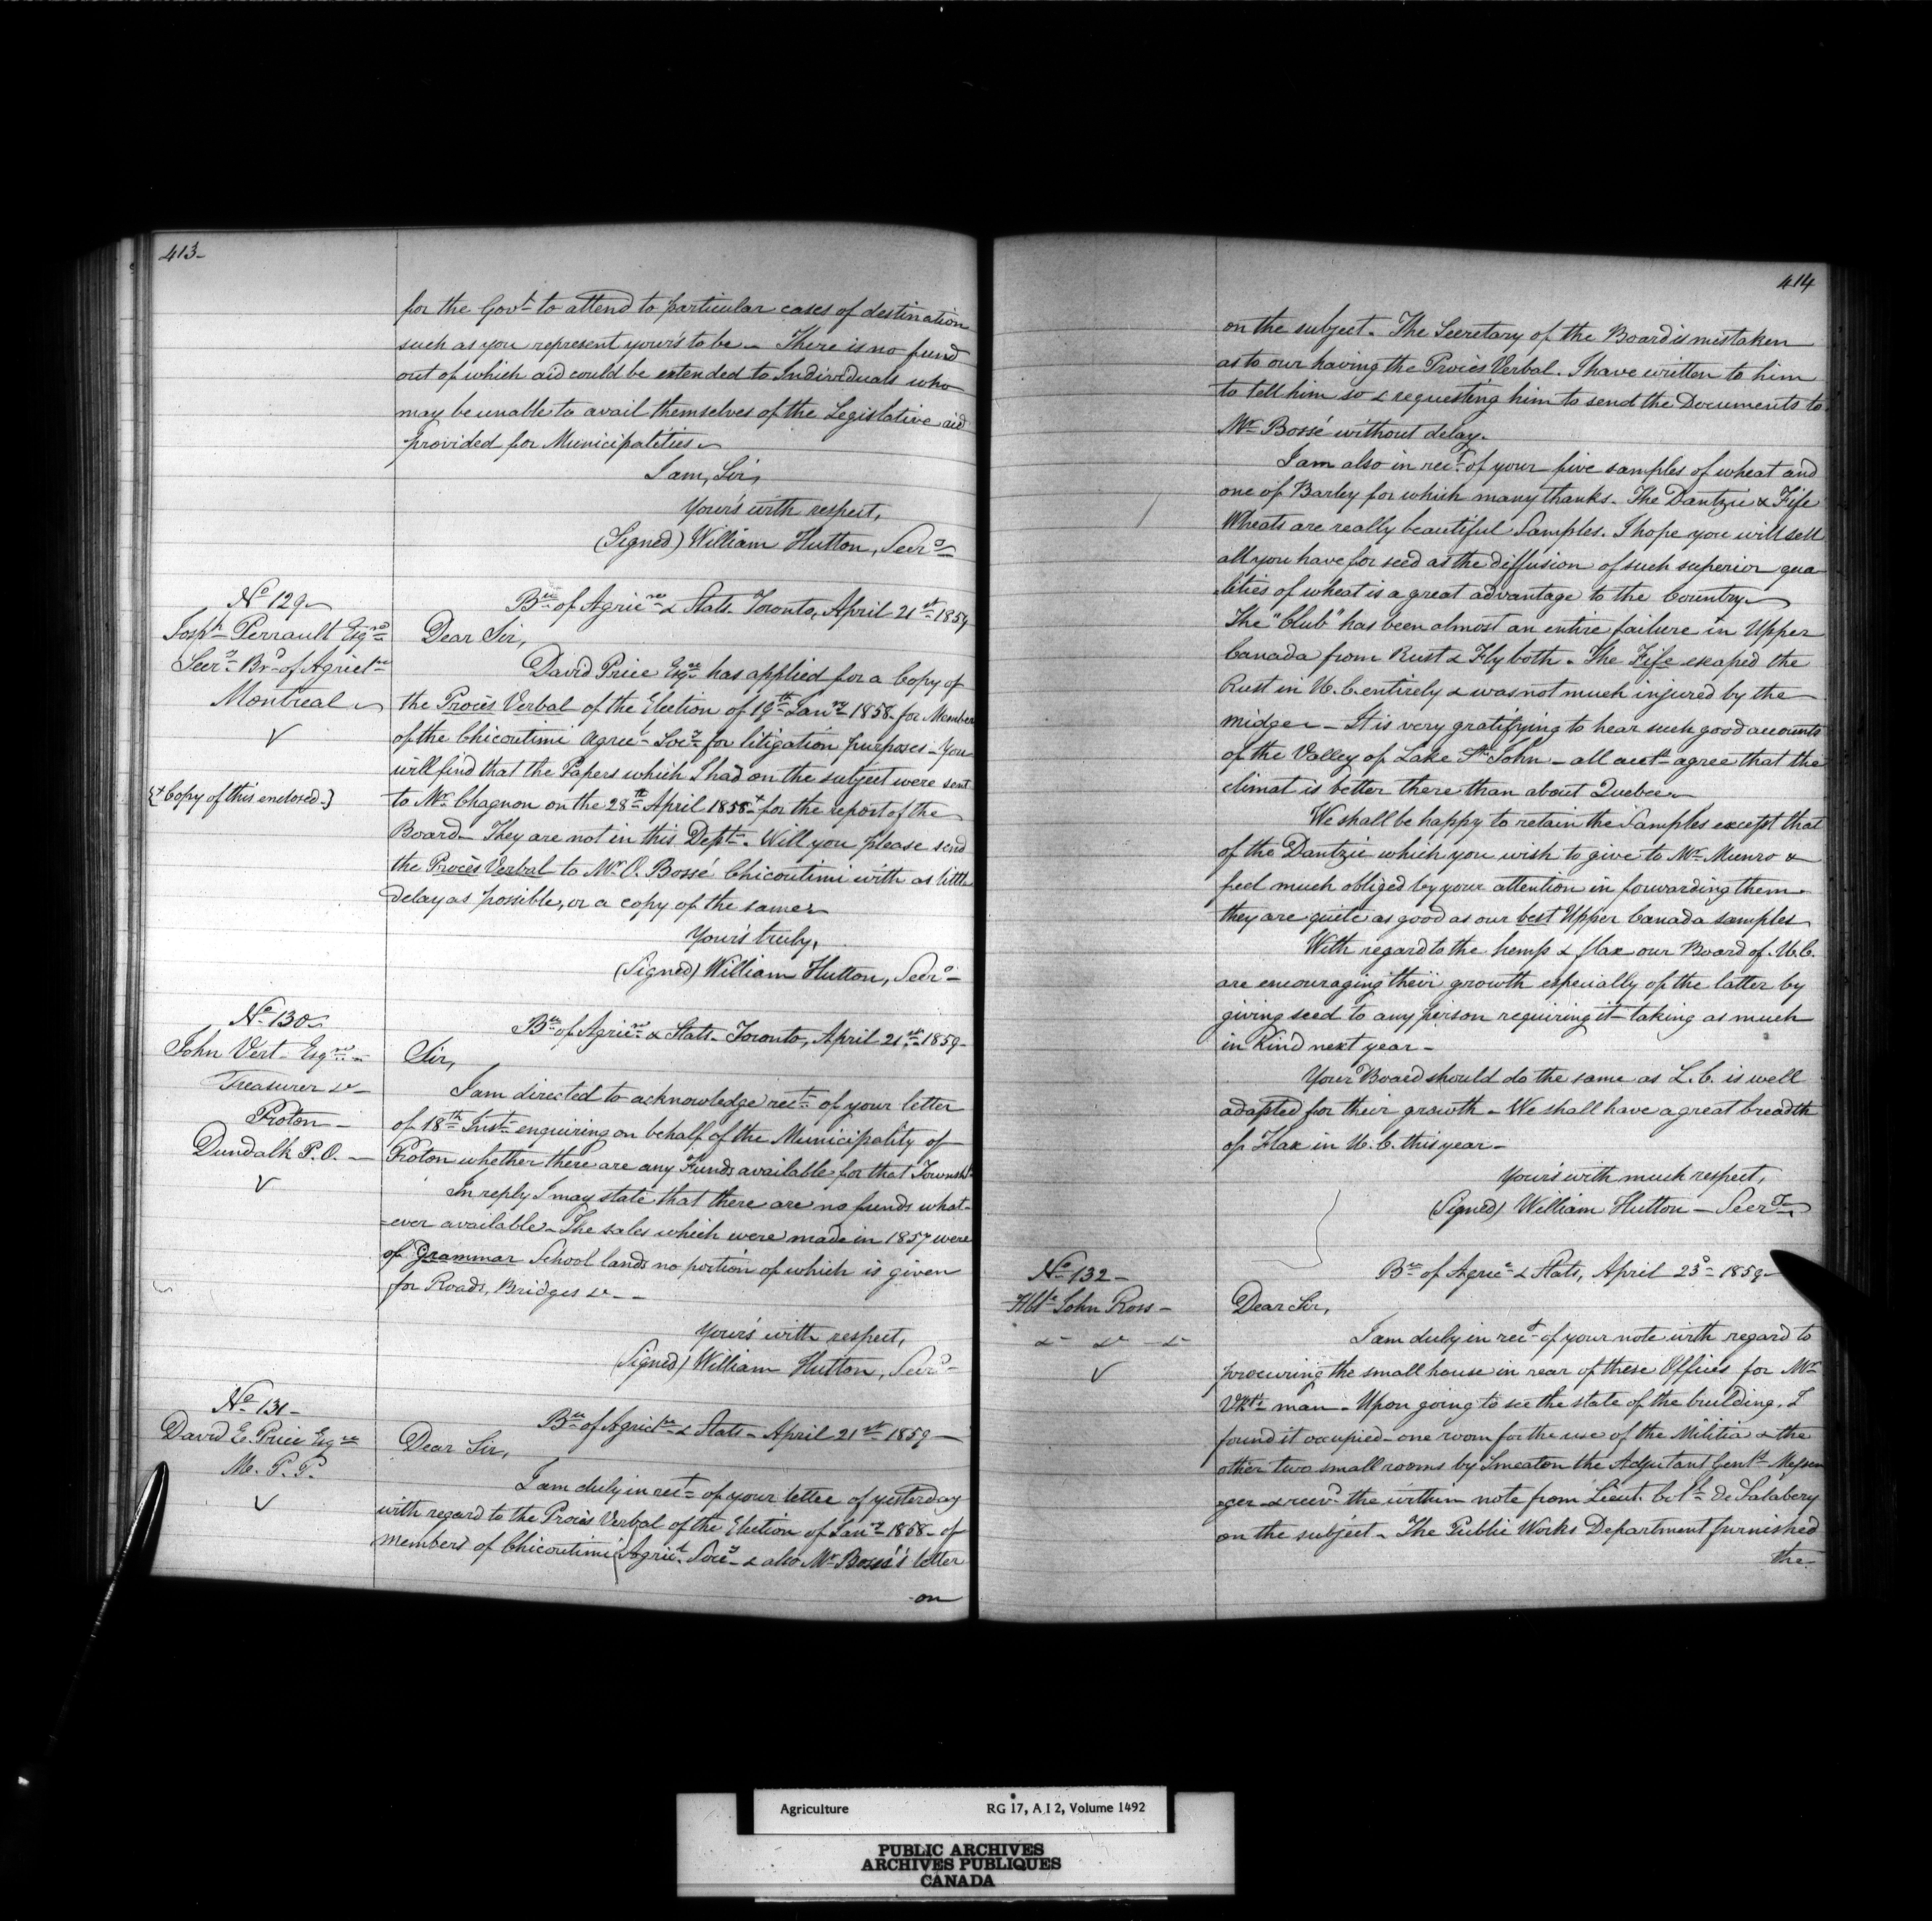 413-
for the Govt to attend to particular cases of destination
such as you represent your's to be - There is no fund
out of which aid could be extended to Individuals who
may be unable to avail themselves of the Legislative aid
provided for Municipalities
I am, Sir,
Your's with respect,
(Signed) William Hutton, Secry
No 129
Josph Perrault Esqre
Secry Brd of Agricre
Montreal
{+ Copy of this enclosed -}
Bu of Agricre & Stats Toronto, April 21st 1859
Dear Sir,
David Price Esqre has applied for a Copy of
the Procès Verbal of the Election of 19th Jany 1858 - for Member
of the Chicoutimi Agricl Socy for litigation purposes - You
will find that the Papers which I had on the subject were sent
to Mr Chagnon on the 28th April 1858 + for the report of the
Board - They are not in this Dept. Will you please send
the Procès Verbal to Mr O. Bossé Chicoutimi with as little
delay as possible, or a copy of the same
Your's truly,
(Signed) William Hutton, Secry
No 130
John Vert Esqre
Treasurer &c
Proton -
Dundalk P.O. -
Bu of Agricre & Stats - Toronto, April 21st 1859 -
Sir,
I am directed to acknowledge rect of your letter
of 18th Inst enquiring on behalf of the Municipality of
Proton whether there are any Funds available for that Townshp
In reply I may state that there are no funds what-
=ever available - The sales which were made in 1857 were
of Grammar School lands no portion of which is given
for Roads, Bridges &c - -
Your's with respect,
(Signed) William Hutton, Secry
No 131 -
David E. Price Esqre
M. P. P.
Bu of Agricre & Stats - April 21st 1859 -
Dear Sir,
I am duly in rect of your letter of yesterday
with regard to the Procès Verbal of the Election of Jany 1858 - of
members of Chicoutimi Agricl Socy & also Mr Bossé's letter
on
414
on the subject - The Secretary of the Board is mistaken
as to our having the Procès Verbal. I have written to him
to tell him so & requesting him to send the Documents to
Mr Bossé without delay.
I am also in rect of your five samples of wheat and
one of Barley for which many thanks - The Dantzic & Fife
Wheats are really beautiful Samples. I hope you will sell
all you have for seed as the diffusion of such superior qua
lities of wheat is a great advantage to the Country
The "Club" has been almost an entire failure in Upper
Canada from Rust & Fly both - The Fife escaped the
Rust in U.C. entirely & was not much injured by the
midge - It is very gratifying to hear such good accounts
of the Valley of Lake St John - all agree that the
climat is better there than about Quebec
We shall be happy to retain the Samples except that
of the Dantzic which you wish to give to Mr Munro &
feel much obliged by your attention in forwarding them -
they are quite as good as our best Upper Canada samples
With regard to the hemp & flax our Board of U.C.
are encouraging their growth especially of the latter by
giving seed to any person requiring it - taking as much
in Kind next year -
Your Board should do the same as L.C. is well
adapted for their growth - We shall have a great breadth
of Flax in U.C. this year -
Your's with much respect,
(Signed) William Hutton - Secry
No 132 -
Hble John Ross -
&c &c &c
Bu of Agric & Stats, April 23d 1859 -
Dear Sir,
I am duly in rect of your note with regard to
procuring the small house in rear of these Offices for Mr
man - Upon going to see the state of the building, I
found it occupied - one room for the use of the Militia & the
other two small rooms by Smeaton the Adjutant Genls Messen
ger & recd the within note from Lieut. Col de Salabery
on the subject - The Public Works Department furnished
the -
Agriculture RG 17, A I 2, Volume 1492
PUBLIC ARCHIVES
ARCHIVES PUBLIQUES
CANADA